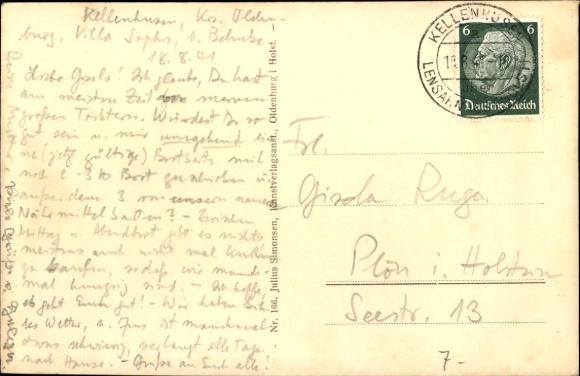 Kellenhusen, Krs. Olden-
burg, Villa Sophie, b. Behnke
18.8.41
Liebe Gisela! Ich glaube, Du hast
am meisten Zeit von meinen
großen Töchtern. Würdest Du so
gut sein u. mir umgehend ei-
ne (jetzt gültige) Brotkarte mit
noch 2-3 Brot schicken u.
außerdem 3 von unseren neuen
Nährmittelkarten? - Zwischen
Mittag u. Abendbrot gibt es nichts
meistens auch nicht mal Kuchen
zu kaufen, sodaß wir manch-
mal hungrig sind. - Ich hoffe,
es geht Euch gut! - Wir haben
Wetter, u. ist manchmal
etwas schwierig, verlangt alle Tage
nach Hause. - Grüße an Euch alle!
Nr. 166. Julius Simonsen, Kunstverlagsanst., Oldenburg i. Holst.
KELLENHUSEN
18.8.41
LENSAHN
6 6
Deutsches Reich
Frl.
Gisela Ruge
Plön i. Holstein
Seestr. 13
7-